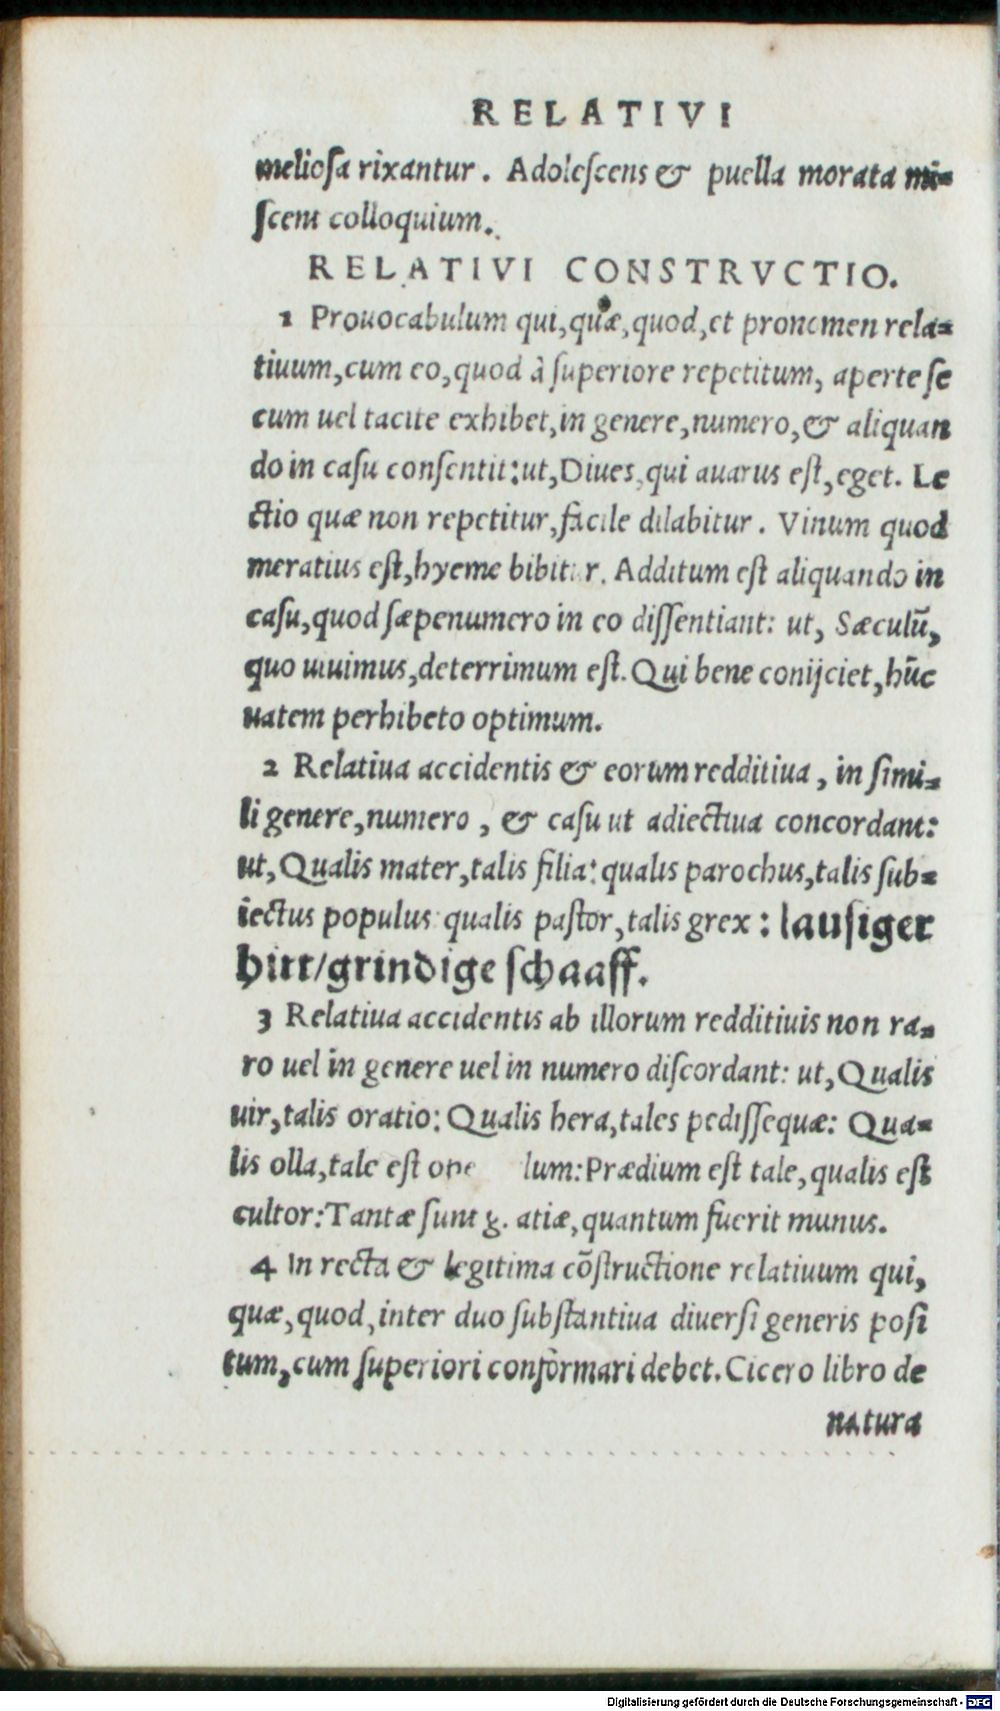 RELATIVI
meliosa rixantur. Adolescens & puella morata mi=
scent colloquium.
RELATIVI CONSTRVCTIO.
1 Prouocabulum qui, quæ, quod, et pronomen rela=
tiuum, cum eo, quod à superiore repetitum, aperte se
cum uel tacite exhibet, in genere, numero, & aliquan
do in casu consentit: ut, Diues, qui auarus est, eget. Le
ctio quæ non repetitur, facile dilabitur. Vinum quod
meratius est, hyeme bibitur. Additum est aliquando in
casu, quod sæpenumero in eo dissentiant: ut, Sæculũ,
quo uiuimus, deterrimum est. Qui bene conijciet, hũc
uatem perhibeto optimum.
2 Relatiua accidentis & eorum redditiua, in simi=
li genere, numero, & casu ut adiectiua concordant:
ut, Qualis mater, talis filia: qualis parochus, talis sub=
iectus populus qualis pastor, talis grex: lausiger
hirt/grindige schaaff.
3 Relatiua accidentis ab illorum redditiuis non ra=
ro uel in genere uel in numero discordant: ut, Qualis
uir, talis oratio: Qualis hera, tales pedissequæ: Qua=
lis olla, tale est ope lum: Prædium est tale, qualis est
cultor: Tantæ sunt g. atiæ, quantum fuerit munus.
4 In recta & legitima cõstructione relatiuum qui,
quæ, quod, inter duo substantiua diuersi generis posi
tum, cum superiori conformari debet. Cicero libro de
natura
Digitalisierung gefördert durch die Deutsche Forschungsgemeinschaft - DFG